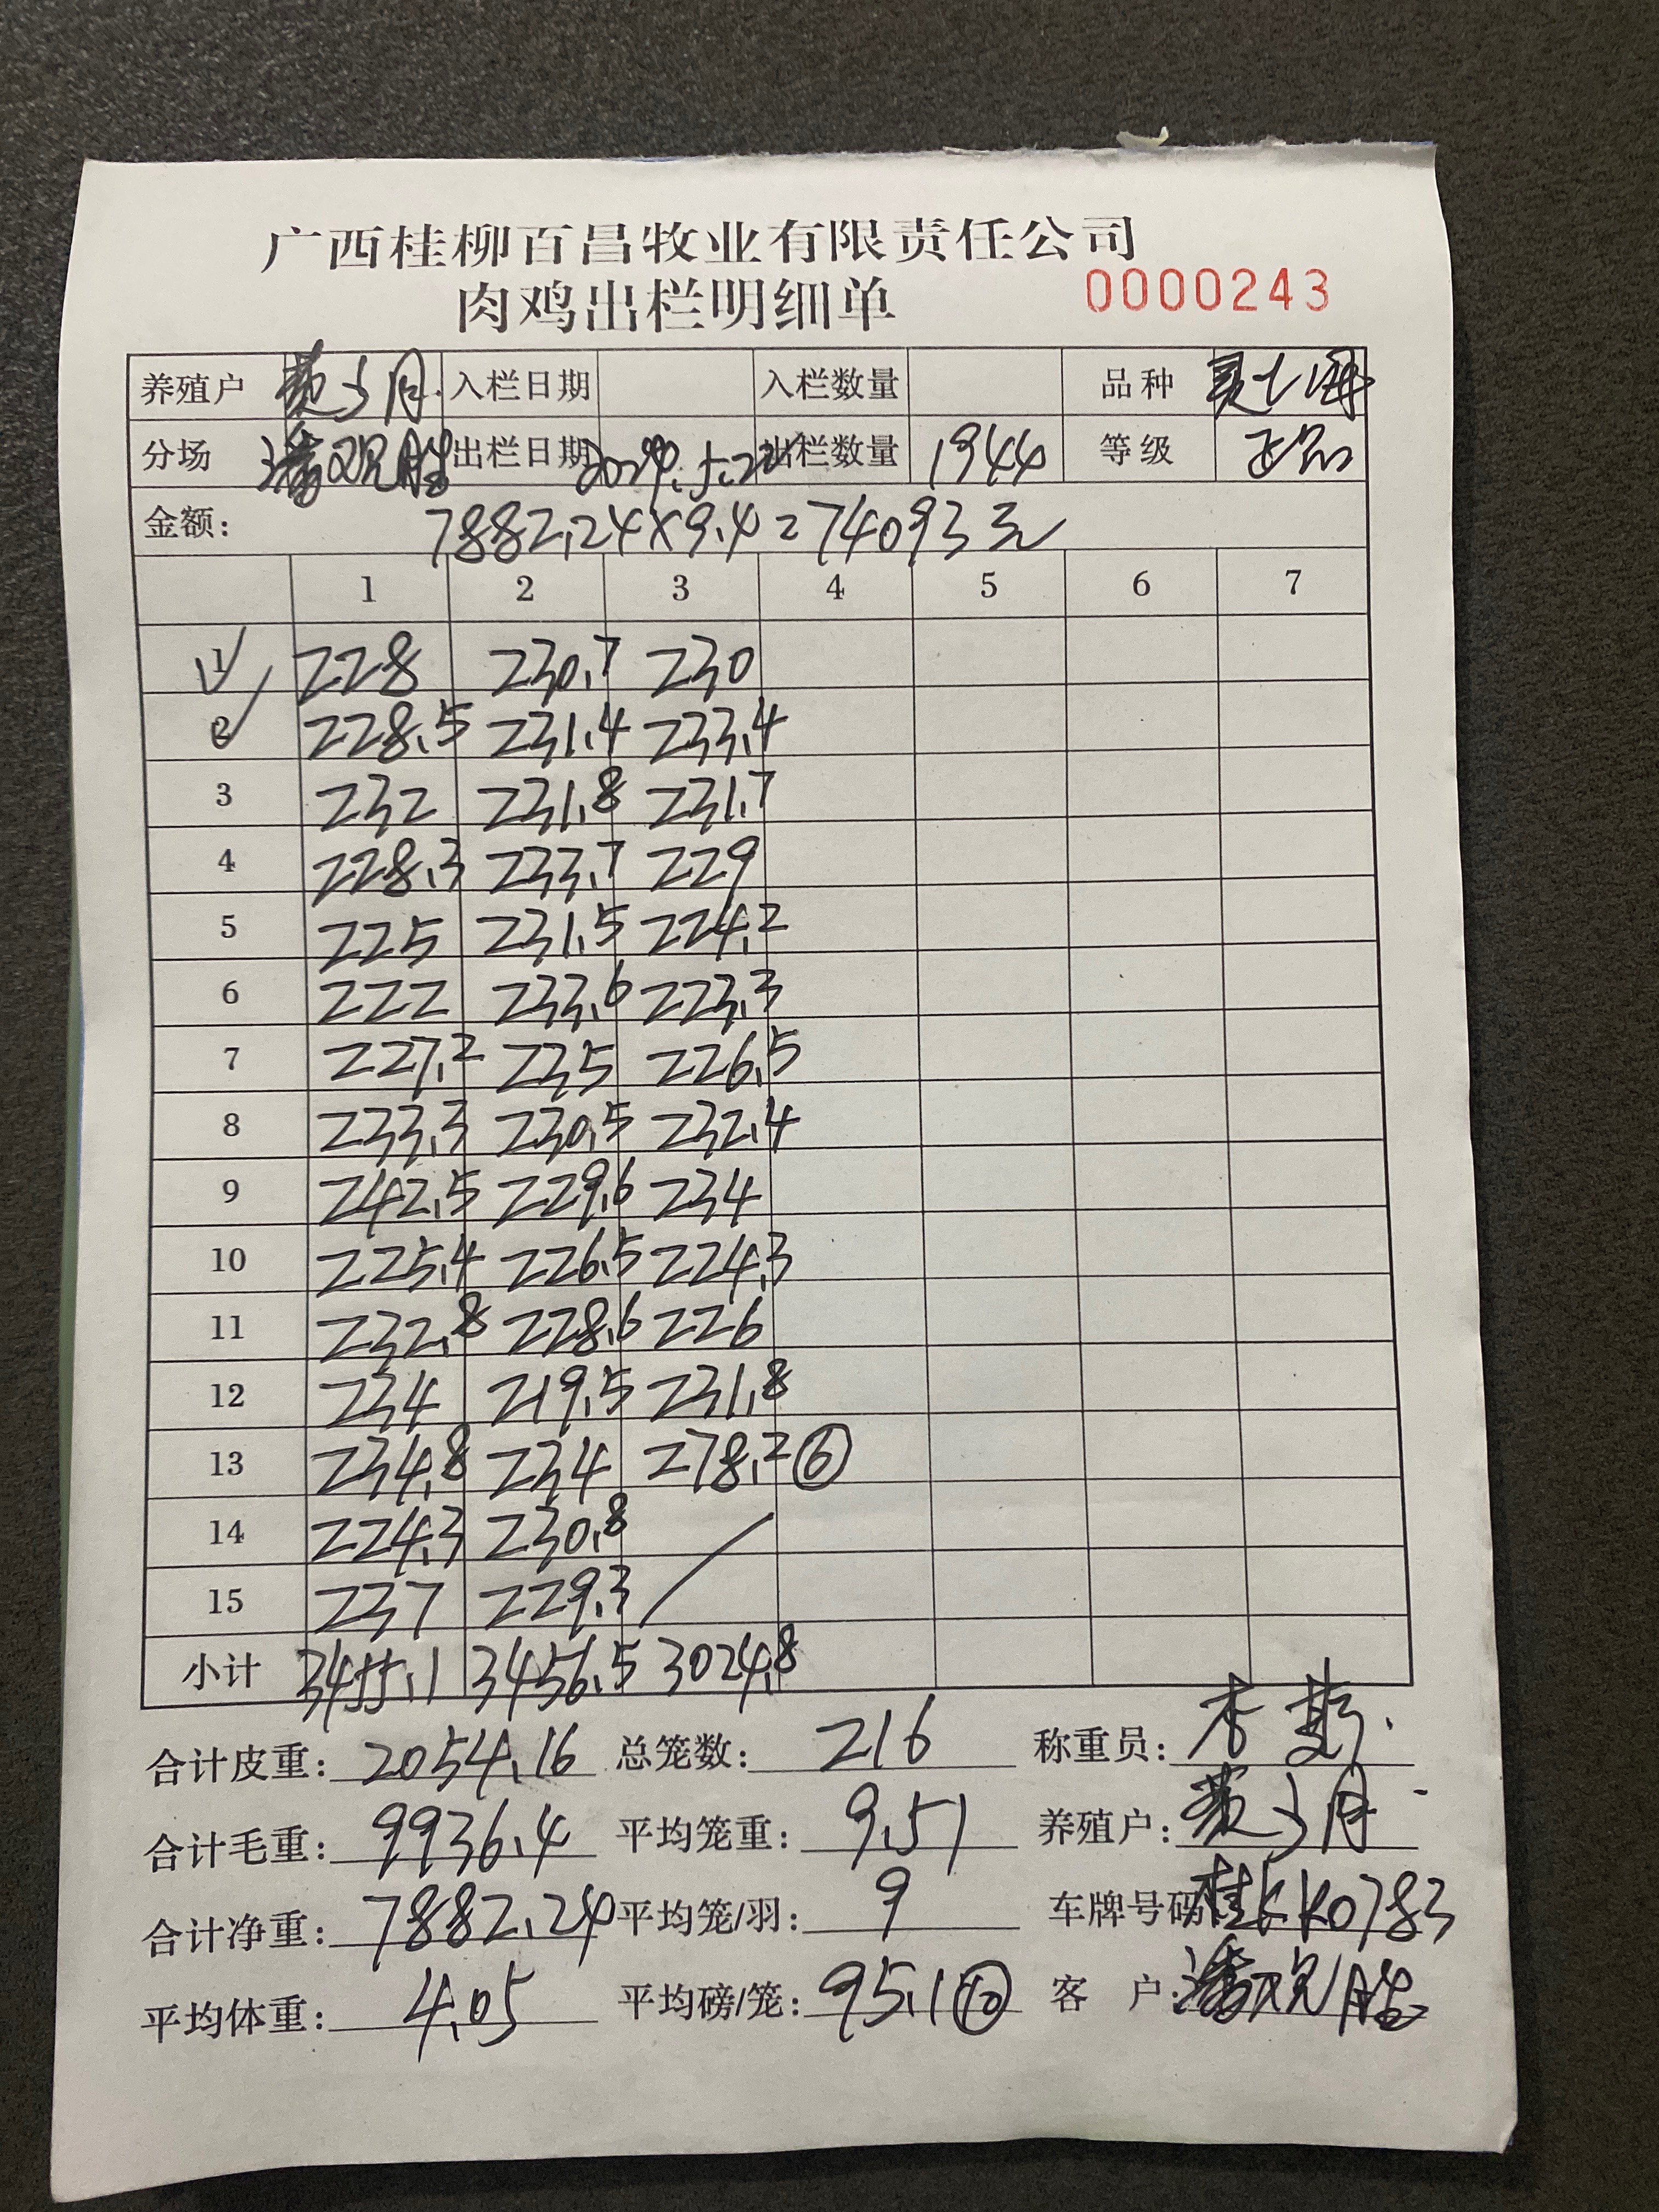 广西桂柳百昌牧业有限责任公司
肉鸡出栏明细单 0000243
养殖户 入栏日期 入栏数量 品种
分场 潘观胜 出栏日期 出栏数量 1944 等级 正品
金额: 7882.24×9.4=74093元
1 2 3 4 5 6 7
1 228 230.7 230
2 228.5 231.4 233.4
3 232 231.8 231.7
4 228.3 233.7 229
5 225 231.5 224.2
6 222 233.6 223.3
7 227.2 235 226.5
8 233.3 230.5 232.4
9 242.5 229.6 234
10 225.4 226.5 224.3
11 232.8 228.6 226
12 234 219.5 231.8
13 234.8 234 278.2 ⑥
14 224.3 230.8
15 237 229.3
小计 3455.1 3456.5 3024.8
合计皮重: 2054.16 总笼数: 216 称重员:
合计毛重: 9936.4 平均笼重: 9.51 养殖户:
合计净重: 7882.24 平均笼/羽: 9 车牌号码: 桂KK0783
平均体重: 4.05 平均磅/笼: 95.1 ⑩ 客 户: 潘观胜